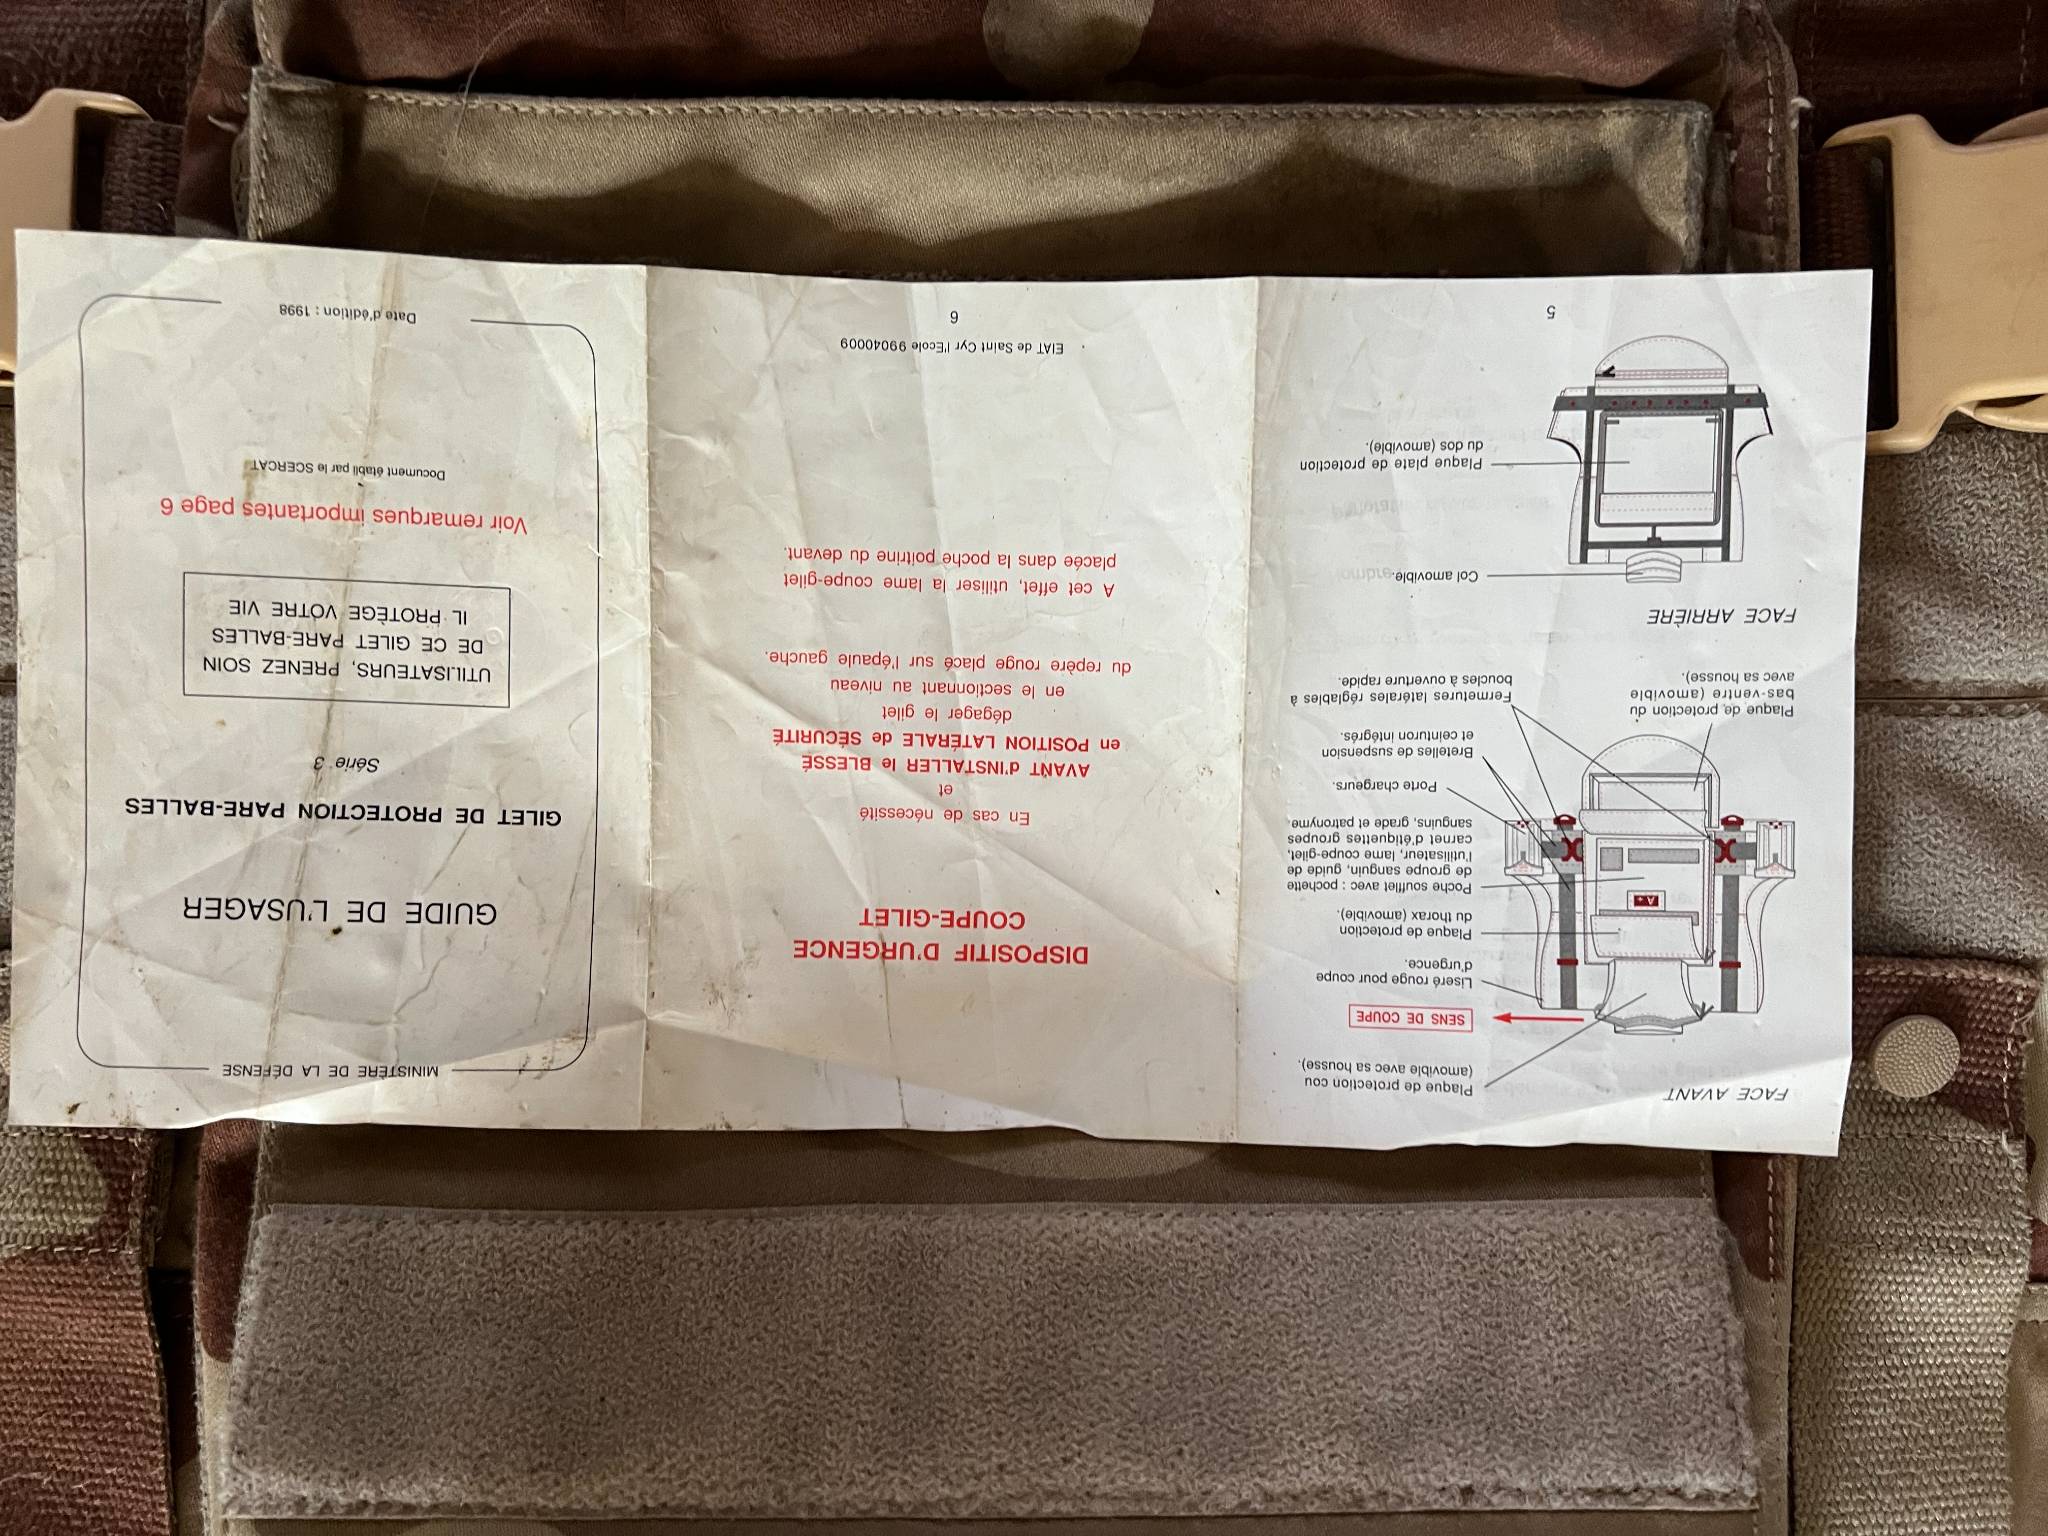 FACE AVANT
Plaque de protection cou
(amovible avec sa housse).
SENS DE COUPE
Liseré rouge pour coupe
d'urgence.
Plaque de protection
du thorax (amovible).
A+
Poche soufflet avec : pochette
de groupe sanguin, guide de
l'utilisateur, lame coupe-gilet,
carnet d'étiquettes groupes
sanguins, grade et patronyme.
Porte chargeurs.
Bretelles de suspension
et ceinturon intégrés.
Fermetures latérales réglables à
boucles à ouverture rapide.
Plaque de protection du
bas-ventre (amovible
avec sa housse).
FACE ARRIÈRE
Col amovible.
Plaque plate de protection
du dos (amovible).
5
DISPOSITIF D'URGENCE
COUPE-GILET
En cas de nécessité
et
AVANT d'INSTALLER le BLESSÉ
en POSITION LATÉRALE de SÉCURITÉ
dégager le gilet
en le sectionnant au niveau
du repère rouge placé sur l'épaule gauche.
A cet effet, utiliser la lame coupe-gilet
placée dans la poche poitrine du devant.
EIAT de Saint Cyr l'Ecole 99040009
6
MINISTÈRE DE LA DÉFENSE
GUIDE DE L'USAGER
GILET DE PROTECTION PARE-BALLES
Série 3
UTILISATEURS, PRENEZ SOIN
DE CE GILET PARE-BALLES
IL PROTÈGE VOTRE VIE
Voir remarques importantes page 6
Document établi par le SCERCAT
Date d'édition : 1998